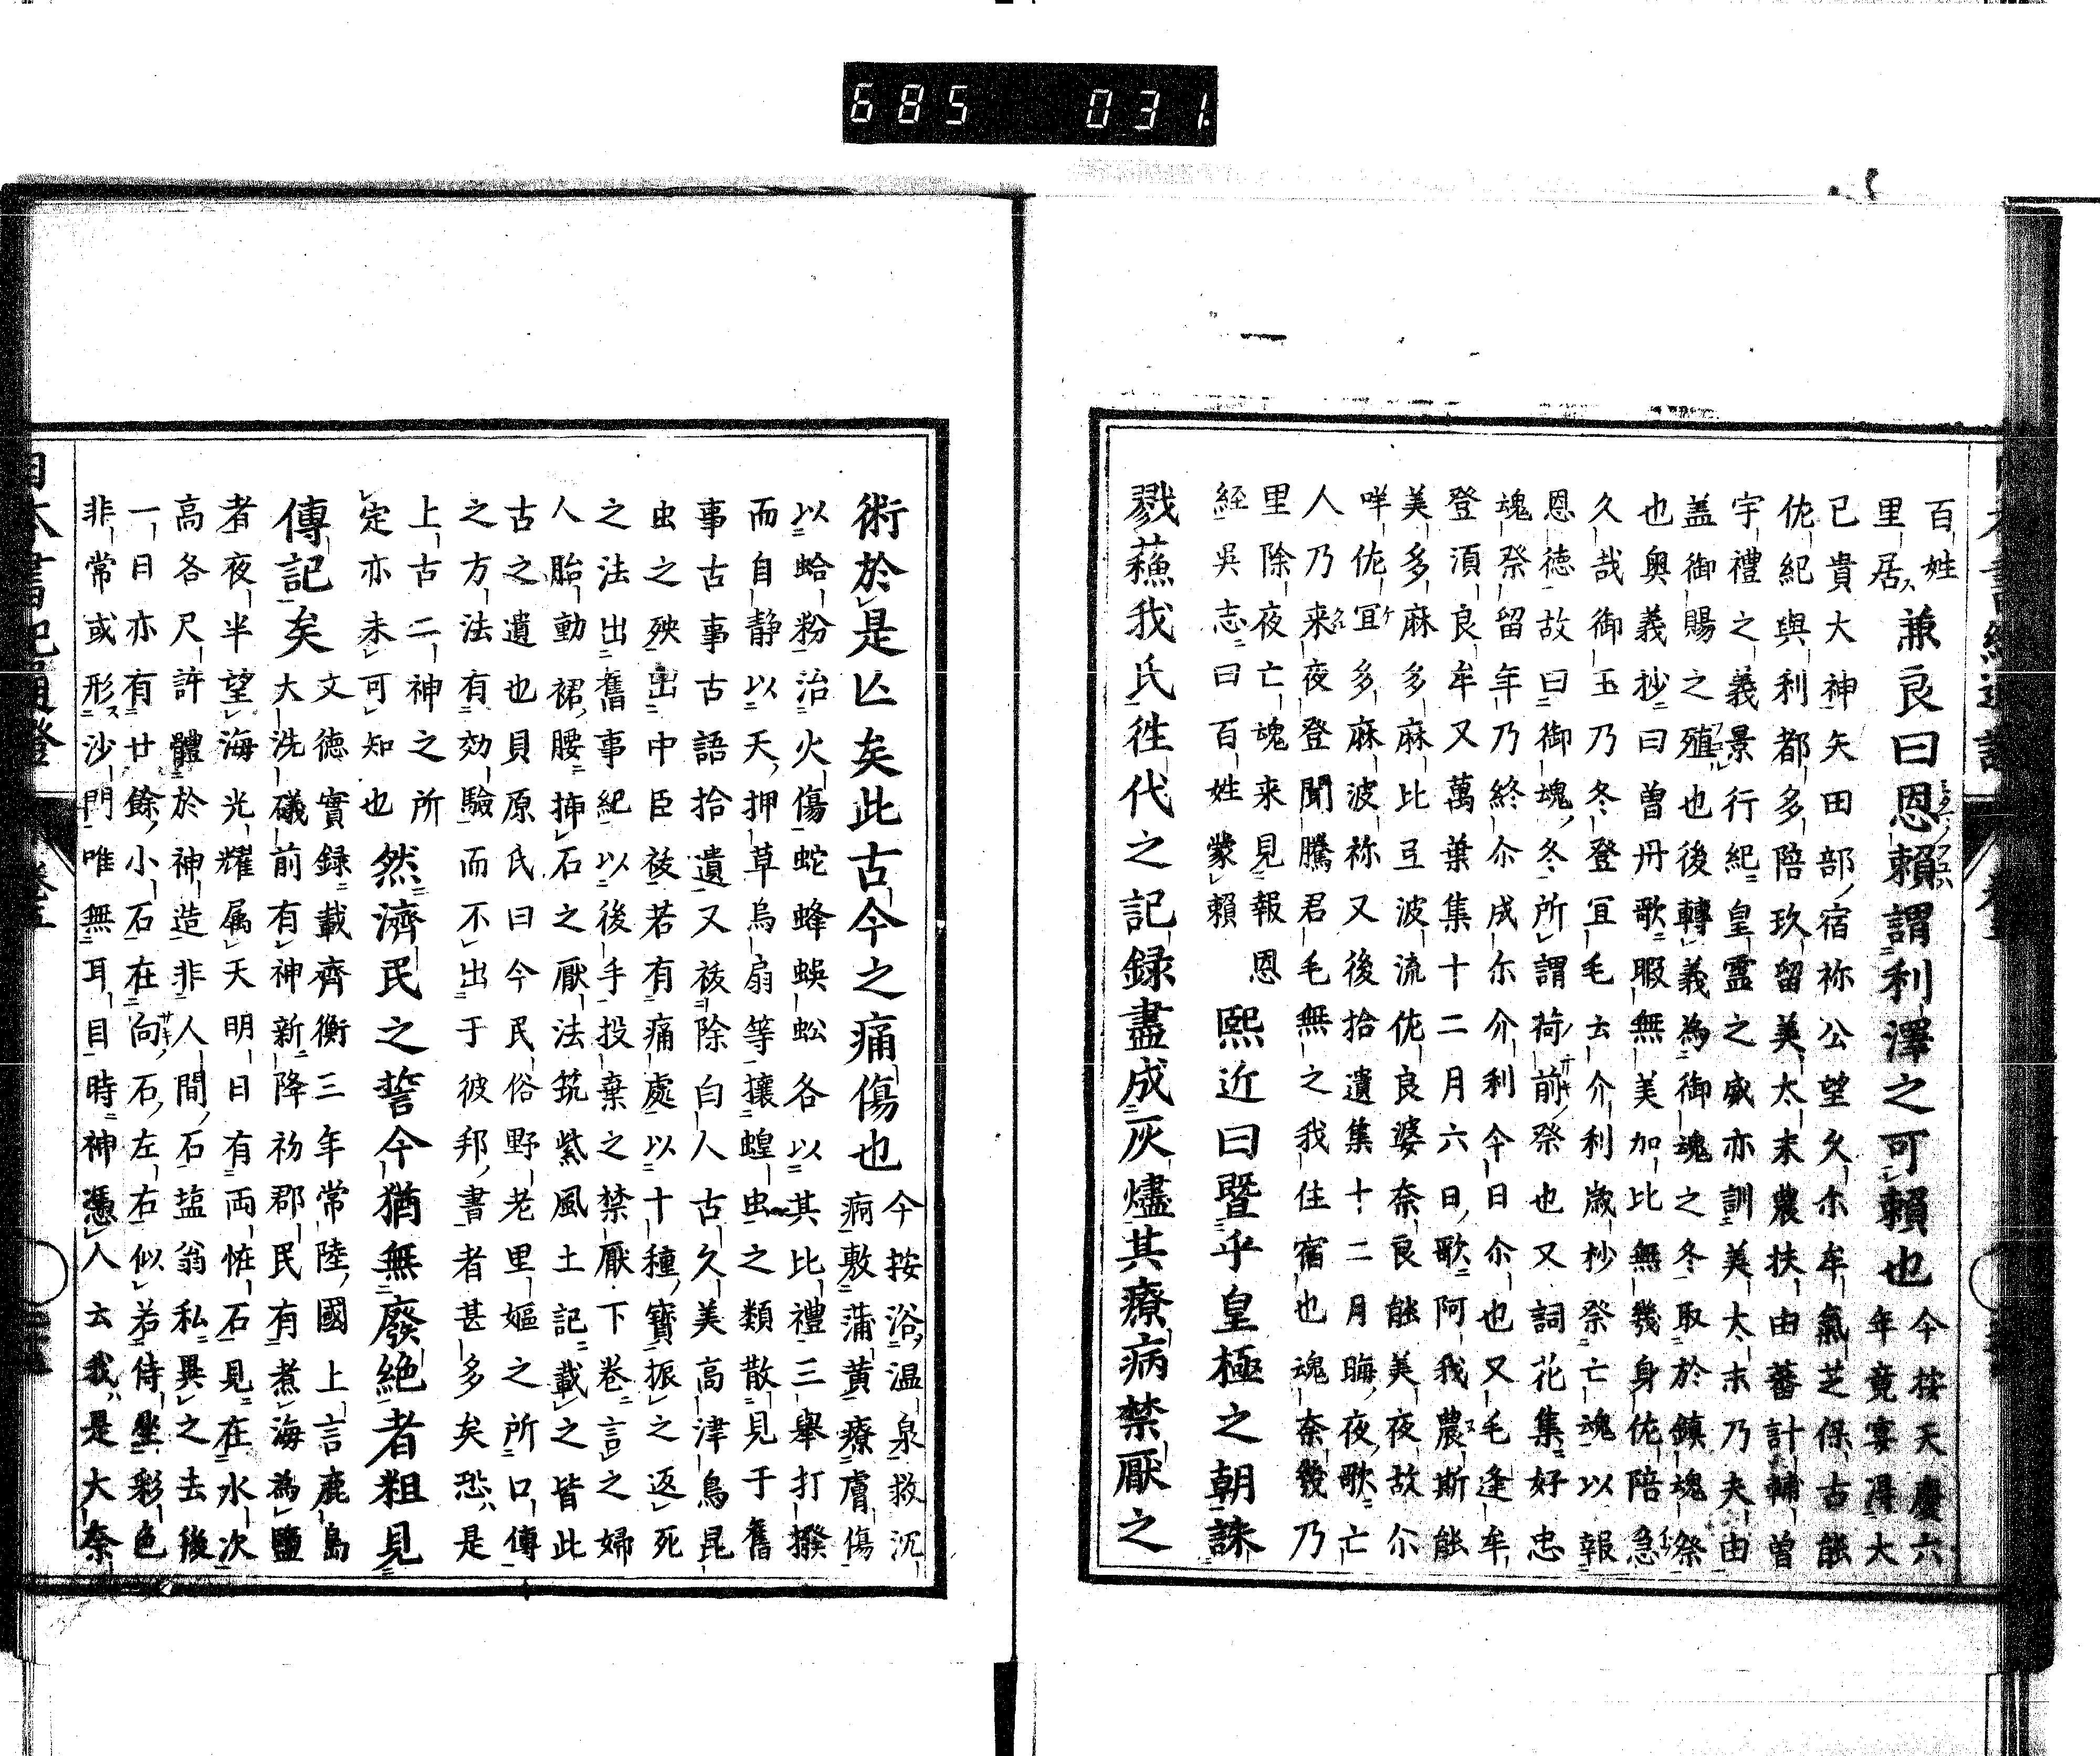 685 031.
百姓
里居
兼良曰恩賴謂利澤之可賴也
今按天慶六
年竟宴得大
已貴大神矢田部宿祢公望久尓牟氣芝保古能
佐紀與利都多陪玖留美太末農扶由蕃計輔曽
宇禮之義景行紀皇霊之威亦訓美太末乃夫由
盖御賜之殖也後轉義為御魂之冬取於鎮魂祭
也奥義抄曰曽丹歌暇無美加比無幾身佐陪急
久哉御玉乃冬登冝毛去介利歳杪祭亡魂以報
恩徳故曰御魂冬所謂荷前祭也又詞花集好忠
魂祭留年乃終尓成尓介利今日尓也又毛逢牟
登湏良牟又萬葉集十二月六日歌阿我農斯能
美多麻多麻比弖波流佐良婆奈良能美夜故尓
咩佐冝多麻波祢又後拾遺集十二月晦夜歌亡
人乃来夜登聞騰君毛無之我住宿也魂奈幾乃
里除夜亡魂来見報恩
経吳志曰百姓蒙賴
熙近曰暨乎皇極之朝誅
戮蘓我氏徃代之記録盡成灰燼其療病禁厭之
術於是亾矣此古今之痛傷也
今按浴温泉救沉
痾敷蒲黄療膚傷
以蛤粉治火傷蛇蜂蜈蚣各以其比禮三擧打撥
而自静以天押草烏扇等攘蝗虫之類散見于舊
事古事古語拾遺又祓除白人古久美高津鳥昆
虫之殃出中臣祓若有痛處以十種寳振之返死
之法出舊事紀以後手投棄之禁厭下卷言之婦
人胎動裙腰挿石之厭法筑紫風土記載之皆此
古之遺也貝原氏曰今民俗野老里嫗之所口傳
之方法有効驗而不出于彼邦書者甚多矣恐是
上古二神之所
定亦未可知也
然濟民之誓今猶無廢絶者粗見
傳記矣
文德實録載齊衡三年常陸國上言鹿島
大洗磯前有神新降初郡民有煮海為鹽
者夜半望海光耀属天明日有両恠石見在水次
高各尺許體於神造非人間石塩翁私異之去後
一日亦有廿餘小石在向石左右似若侍坐彩色
非常或形沙門唯無耳目時神憑人云我是大奈
日本書紀通證 卷五